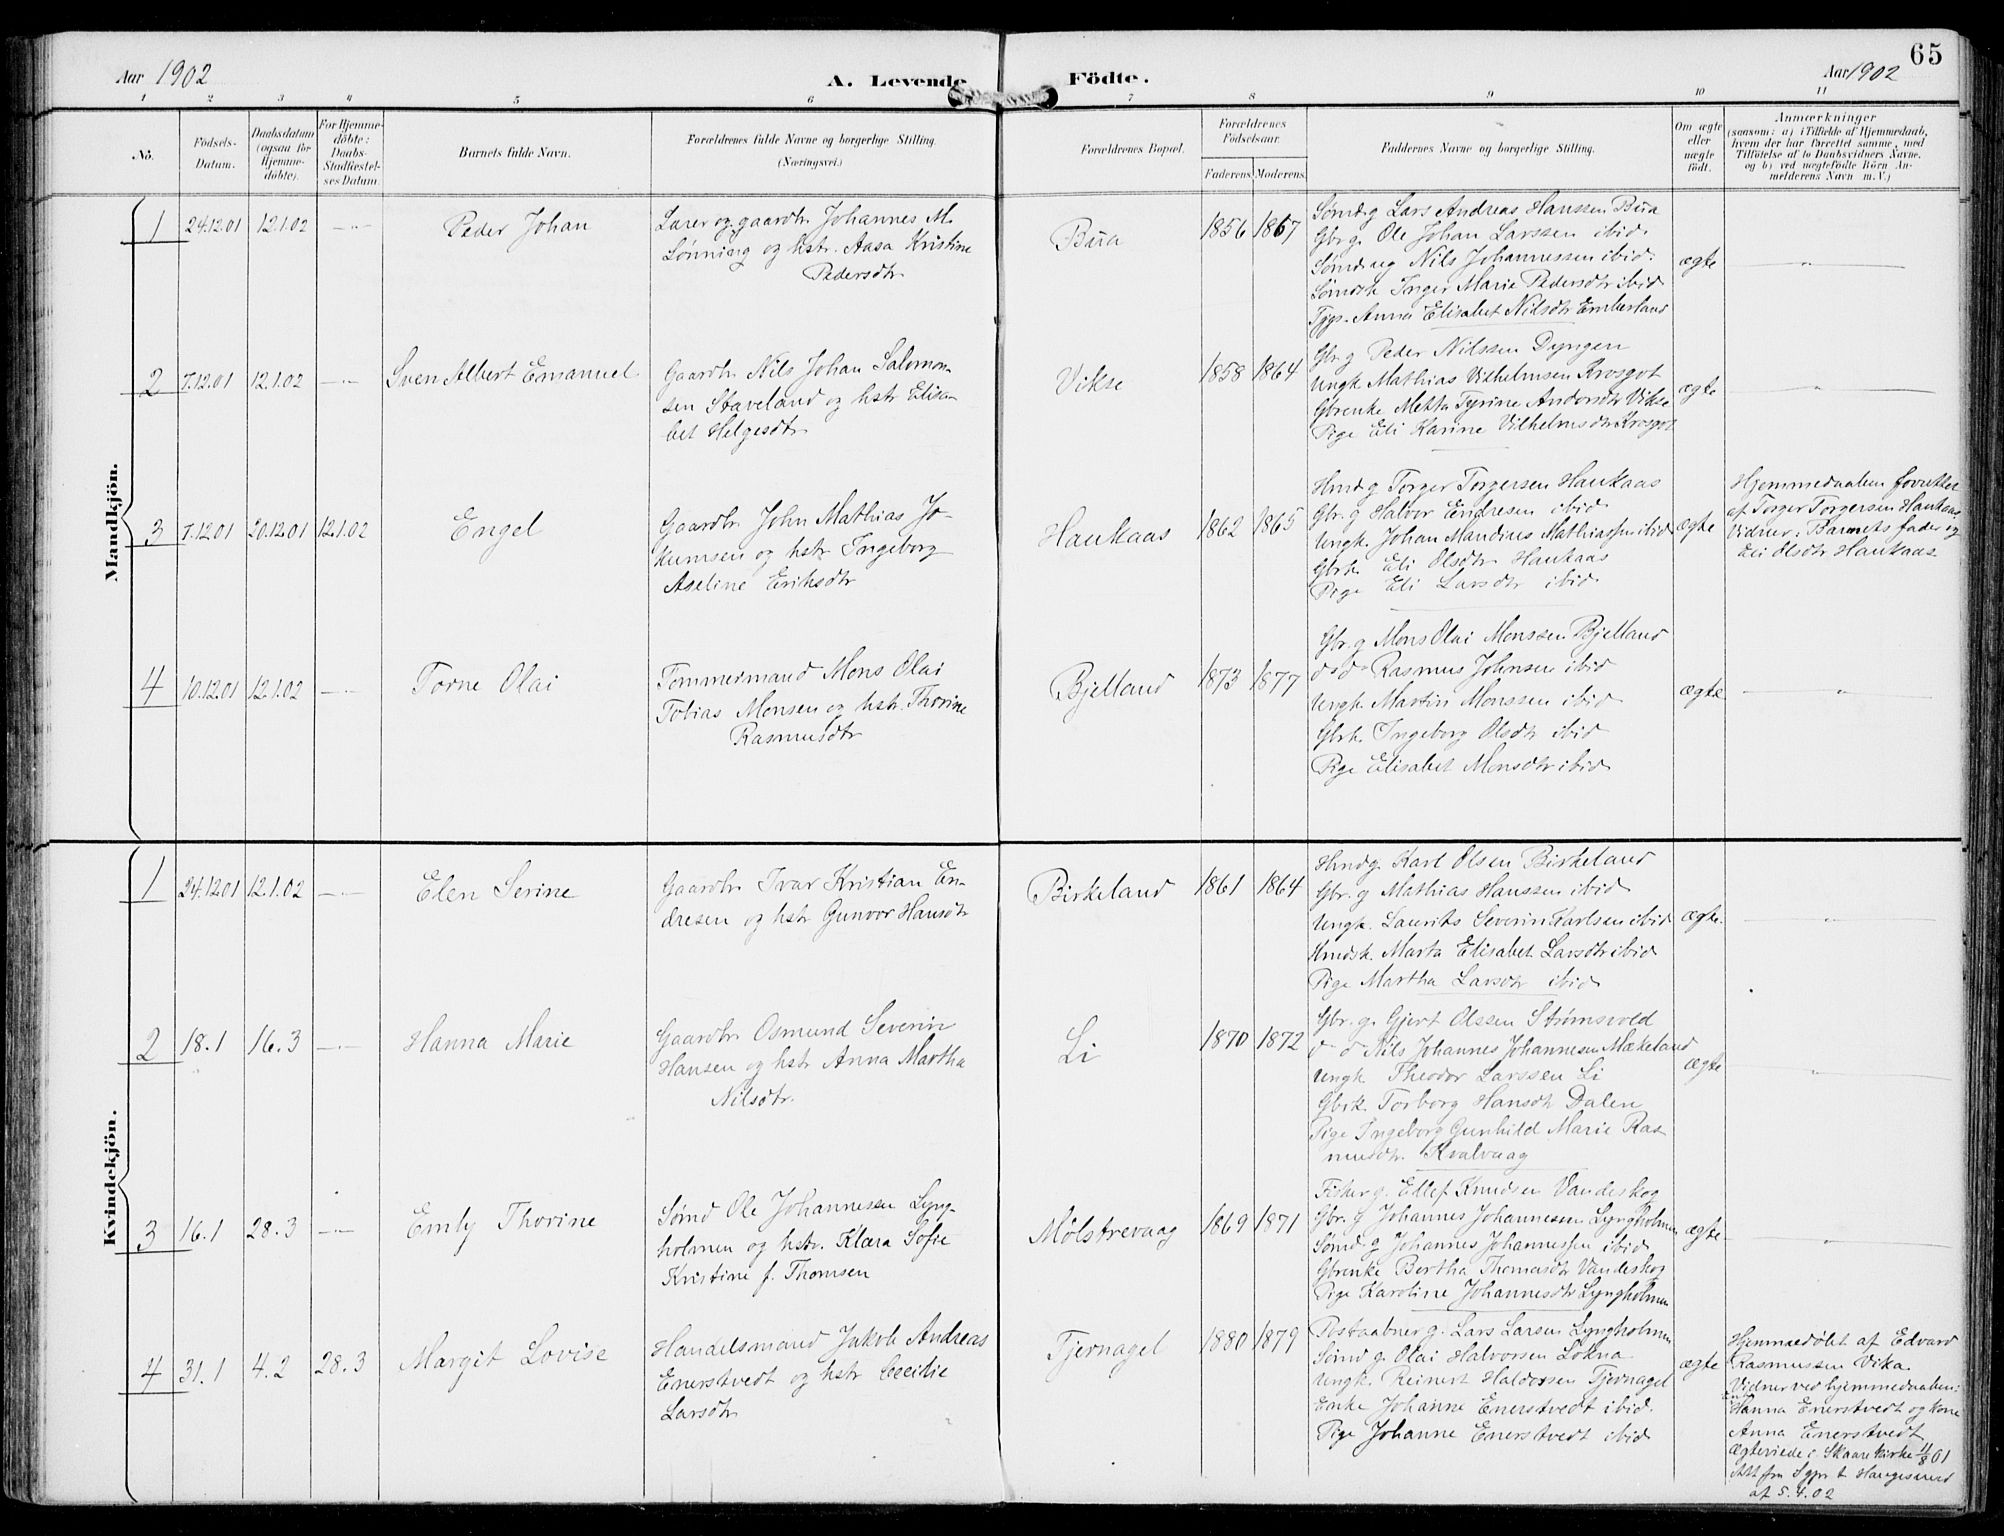 65
Aar 1902
A. Levende Födte.
Aar 1902
1 2 3 4 5 6 7 8 9 10 11
Nö.
Födsels-
Datum.
Daabsdatum
(ogsaa for
Hjemme-
döbte).
For Hjemme-
döbte:
Daabs-
Stadfæstel-
ses Datum
Barnets fulde Navn.
Forældrenes fulde Navne og borgerlige Stilling.
(Næringsvei.)
Forældrenes Bopæl.
Forældrenes
Födselsaar.
Faderens Moderens
Faddernes Navne og borgerlige Stilling.
Om ægte
eller
uægte
födt.
Anmærkninger
(saasom: a) i Tilfælde af Hjemmedaab,
hvem der har forrettet samme, med
Tilföielse af to Daabsvidners Navne,
og b) ved uægtefödte Börn An-
melderens Navn m. V.)
Mandkjön.
1 24.12.01 12.1.02 —"—
Peder Johan
Lærer og gaardbr Johannes M.
Lønning og hstr. Aasa Kristine
Pedersdtr
Bua
1856 1867
Sømd g Lars Andreas Hanssen Bua
Gbr g. Ole Johan Larssen ibid.
Sømd ug Nils Johannessen ibid.
Sømdk Inger Marie Pedersdtr ibid
Tjps. Anna Elisabet Nilsdtr Emberland
ægte
—"—
2 7.12.01 12.1.02 —"—
Sven Albert Emanuel
Gaardbr Nils Johan Salomon-
sen Staveland og hstr Elisa-
bet Helgesdtr
Vikse
1858 1864
Gbr g Peder Nilssen Dyngen
Ungk Mathias Vilhelmsen Krosgot
Gbrenke Metta Tyrine Andersdtr Vikse
Pige Eli Karine Vilhelmsdtr Krosgot
ægte
—"—
3 7.12.01 20.12.01 12.1.02
Engel
Gaardbr John Mathias Jo-
kumsen og hstr Ingeborg
Aseline Eriksdtr
Haukaas
1862 1865
Hmd g Torger Torgersen Haukaas
Gbr. g Halvor Endresen ibid
Ungk. Johan Mandius Mathiassen ibid
Gbrk Eli Olsdtr Haukaas
Pige Eli Larsdtr ibid
ægte
Hjemmedaaben forrettet
af Torger Torgersen Haukaas
Vidner: Barnets fader og
Eli Olsdtr Haukaas.
4 10.12.01 12.1.02 —"—
Torne Olai
Tømmermand Mons Olai
Tobias Monsen og hstr. Thorine
Rasmusdtr
Bjelland
1873 1877
Gbr. g Mons Olai Monssen Bjelland
d d Rasmus Johnsen ibid
Ungk Martin Monssen ibid
Gbrk. Ingeborg Olsdtr ibid
Pige Elisabet Monsdtr ibid
ægte
—"—
Kvindekjön.
1 24.12.01 12.1.02 —"—
Elen Serine
Gaardbr Ivar Kristian En-
dresen og hstr Gunvor Hansdtr
Birkeland
1861 1864
Hmd g Karl Olsen Birkeland
Gbr. g Mathias Hanssen ibid
Ungk. Laurits Severin Karlsen ibid
Hmdsk. Marta Elisabet Larsdtr ibid
Pige Martha Larsdtr ibid
ægte.
—"—
2 18.1 16.3 —"—
Hanna Marie
Gaardbr Osmund Severin
Hansen og hstr Anna Martha
Nilsdtr.
Li
1870 1872
Gbr. g. Gjert Olssen Strømsvold
d d Nils Johannes Johannesen Mækeland
Ungk Theodor Larssen Li
Gbrk. Torborg Hansdtr Dalen
Pige Ingeborg Gunhild Marie Ras-
musdtr. Kvalvaag
ægte
—"—
3 16.1 28.3 —"—
Emly Thorine
Sømd Ole Johannesen Lyng-
holmen og hstr. Klara Sofie
Kristine f. Thomsen
Mølstrevaag
1869 1871
Fisker g. Ellef Knudsen Vandeskog
Gbr. g Johannes Johannessen Lyngholmen
Sømd. g Johannes Johannessen ibid
Gbrenke Bertha Thomasdtr Vandeskog
Pige Karoline Johannesdtr Lyngholmen
ægte
—"—
4 31.1 4.2 28.3
Margit Lovise
Handelsmand Jakob Andreas
Enerstvedt og hstr Cecilie
Larsdtr
Tjernagel
1880 1879
Postaabner g. Lars Larsen Lyngholmen
Sømd g. Olai Halvorsen Lokna
Ungk. Reinert Haldorsen Tjernagel
Enke Johanne Enerstvedt ibid.
Pige Johanne Enerstvedt ibid
ægte
Hjemmedøbt af Edvard
Rasmussen Vika.
Vidner ved hjemmedaaben:
Hanna Enerstvedt og kone
Anna Enerstvedt
Ægteviede i Skaare kirke 11/8 01
Att fra Spr t Haugesund
af 5.4.02